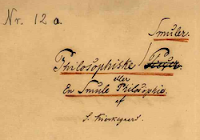 Nr. 12 a.
Smuler.
Philosophiske
eller
En Smule Philosophie.
af
S. Kierkegaard.